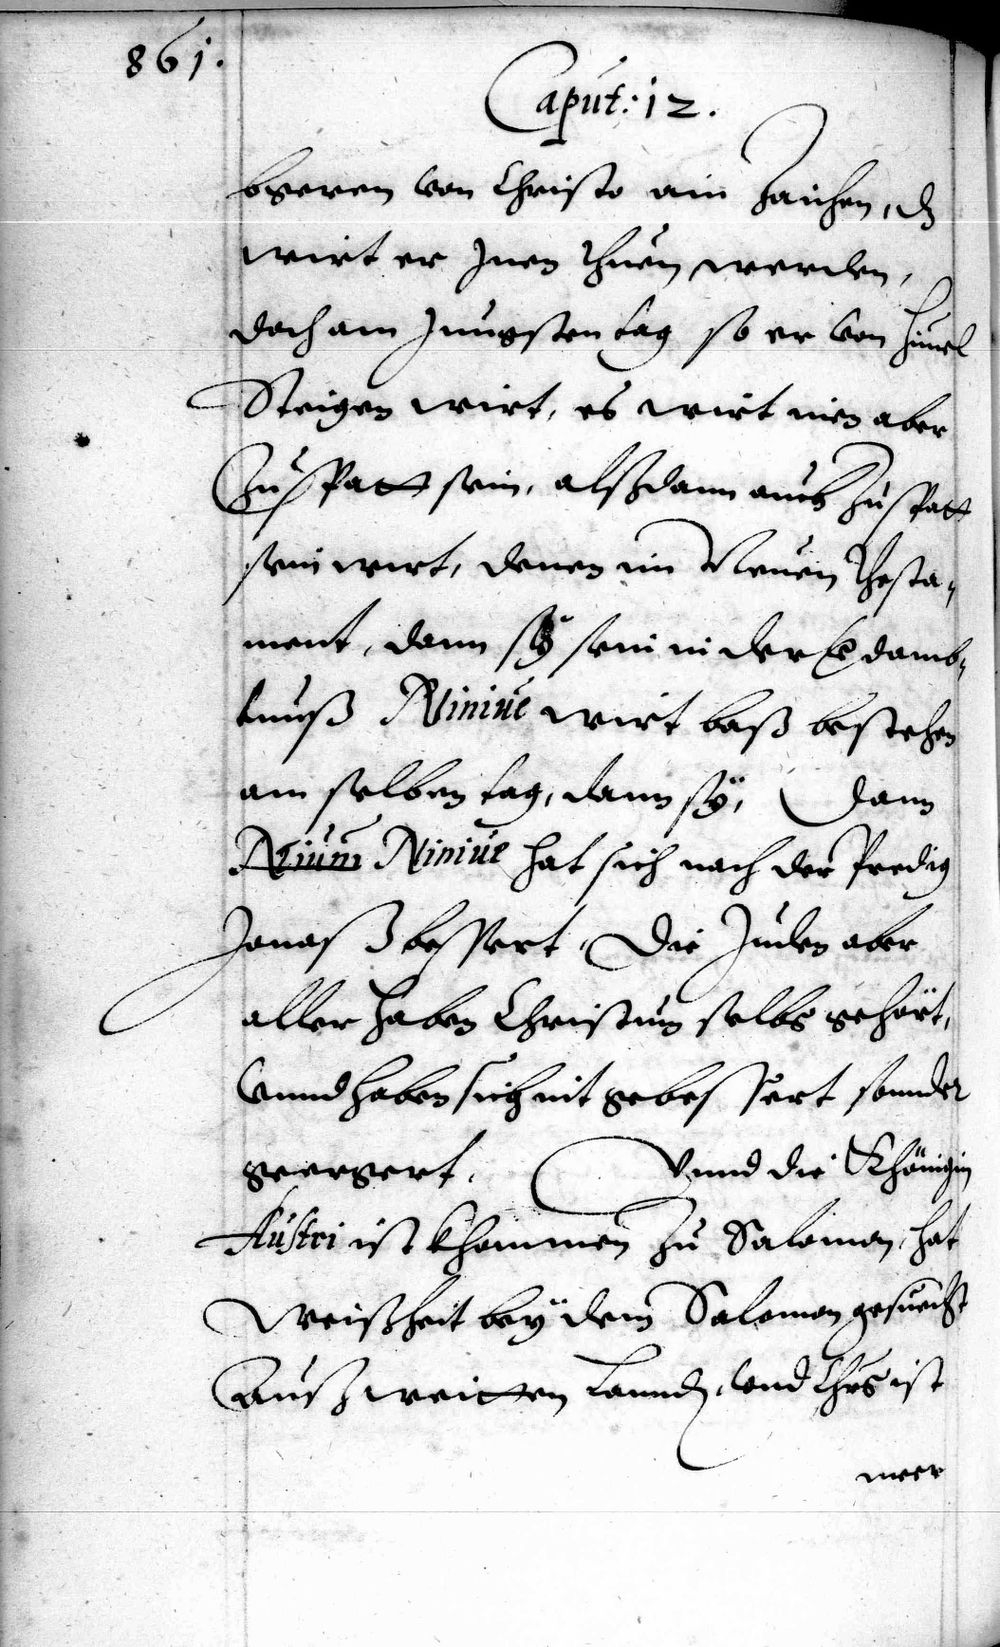 861.
Caput: 12.
bgeren von Christo ain Zaichen, dz
wirt er Inen thuen werden,
doch am Jungsten tag so er von himel
Steigen wirt, es wirt inen aber
Zu spatt sein, alßdann auch Zu spatt
sein wirt, denen im Neuen Thesta-
ment, dann sÿ sein in der verdamb-
tnuß Niniue wirt baß bestehen
am selben tag, dann sÿ, Dann
Niniue hat sich nach der Predig
Jonas bessert, Die Juden aber
aller haben Christum selbs gehört,
Vnnd haben sich nit gebessert sonnder
geergert. Vnnd die Khönigin
Austri ist khommen Zu Salomon, hat
Weißheit beÿ dem Salomon gesuecht
Auß weitten Lannd, vnd Chrs ist
meer